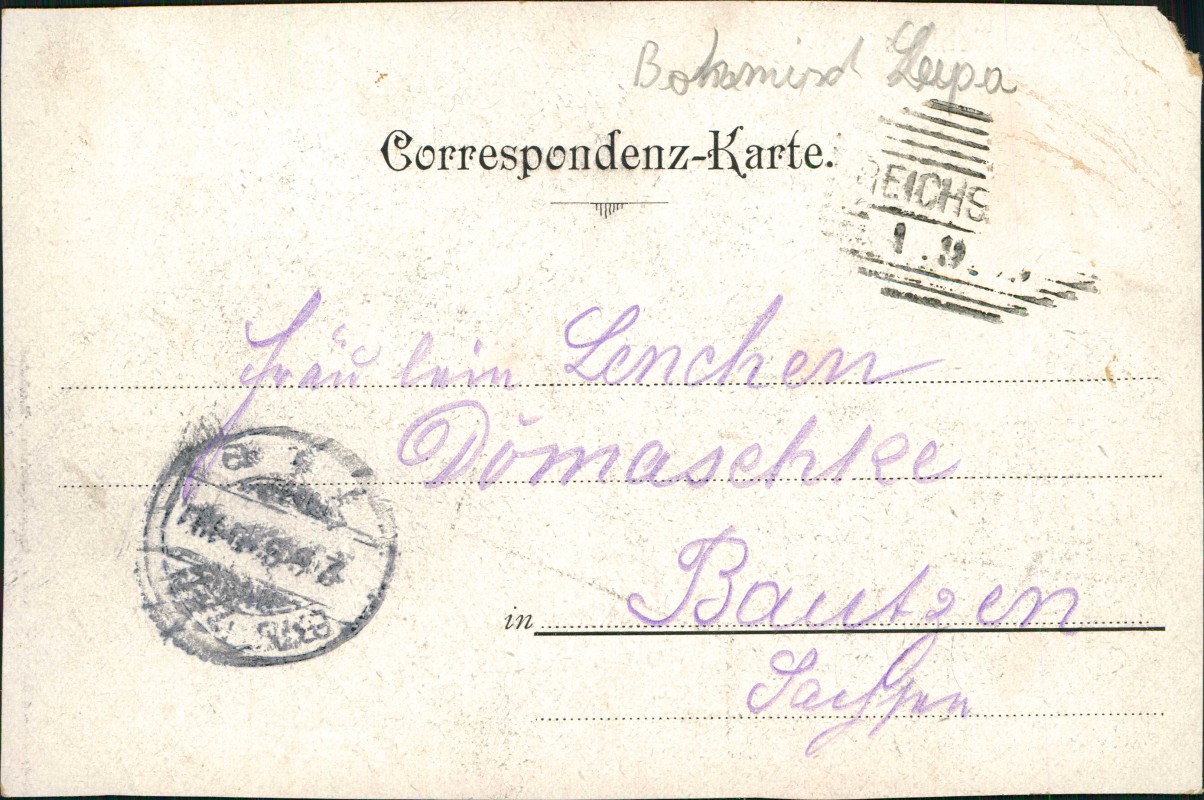 Leipa
Correspondenz-Karte.
REICHS
1.9.
Fräulein Lenchen
Dŏmaschke
in Bautzen
Sachsen